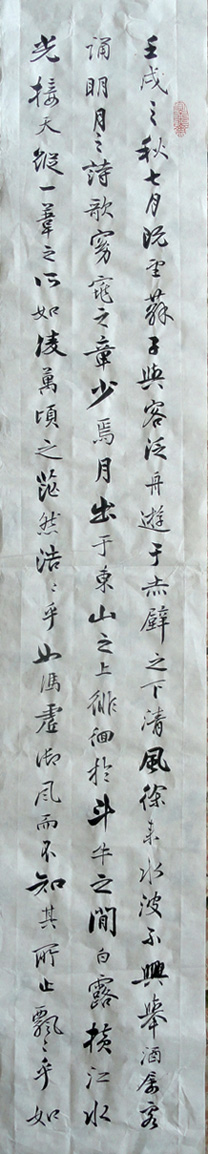 壬戌之秋七月既望蘇子與客泛舟遊于赤壁之下清風徐來水波不興舉酒屬客
誦明月之詩歌窈窕之章少焉月出于東山之上徘徊於斗牛之間白露橫江水
光接天縱一葦之所如凌萬頃之茫然浩浩乎如馮虛御風而不知其所止飄飄乎如